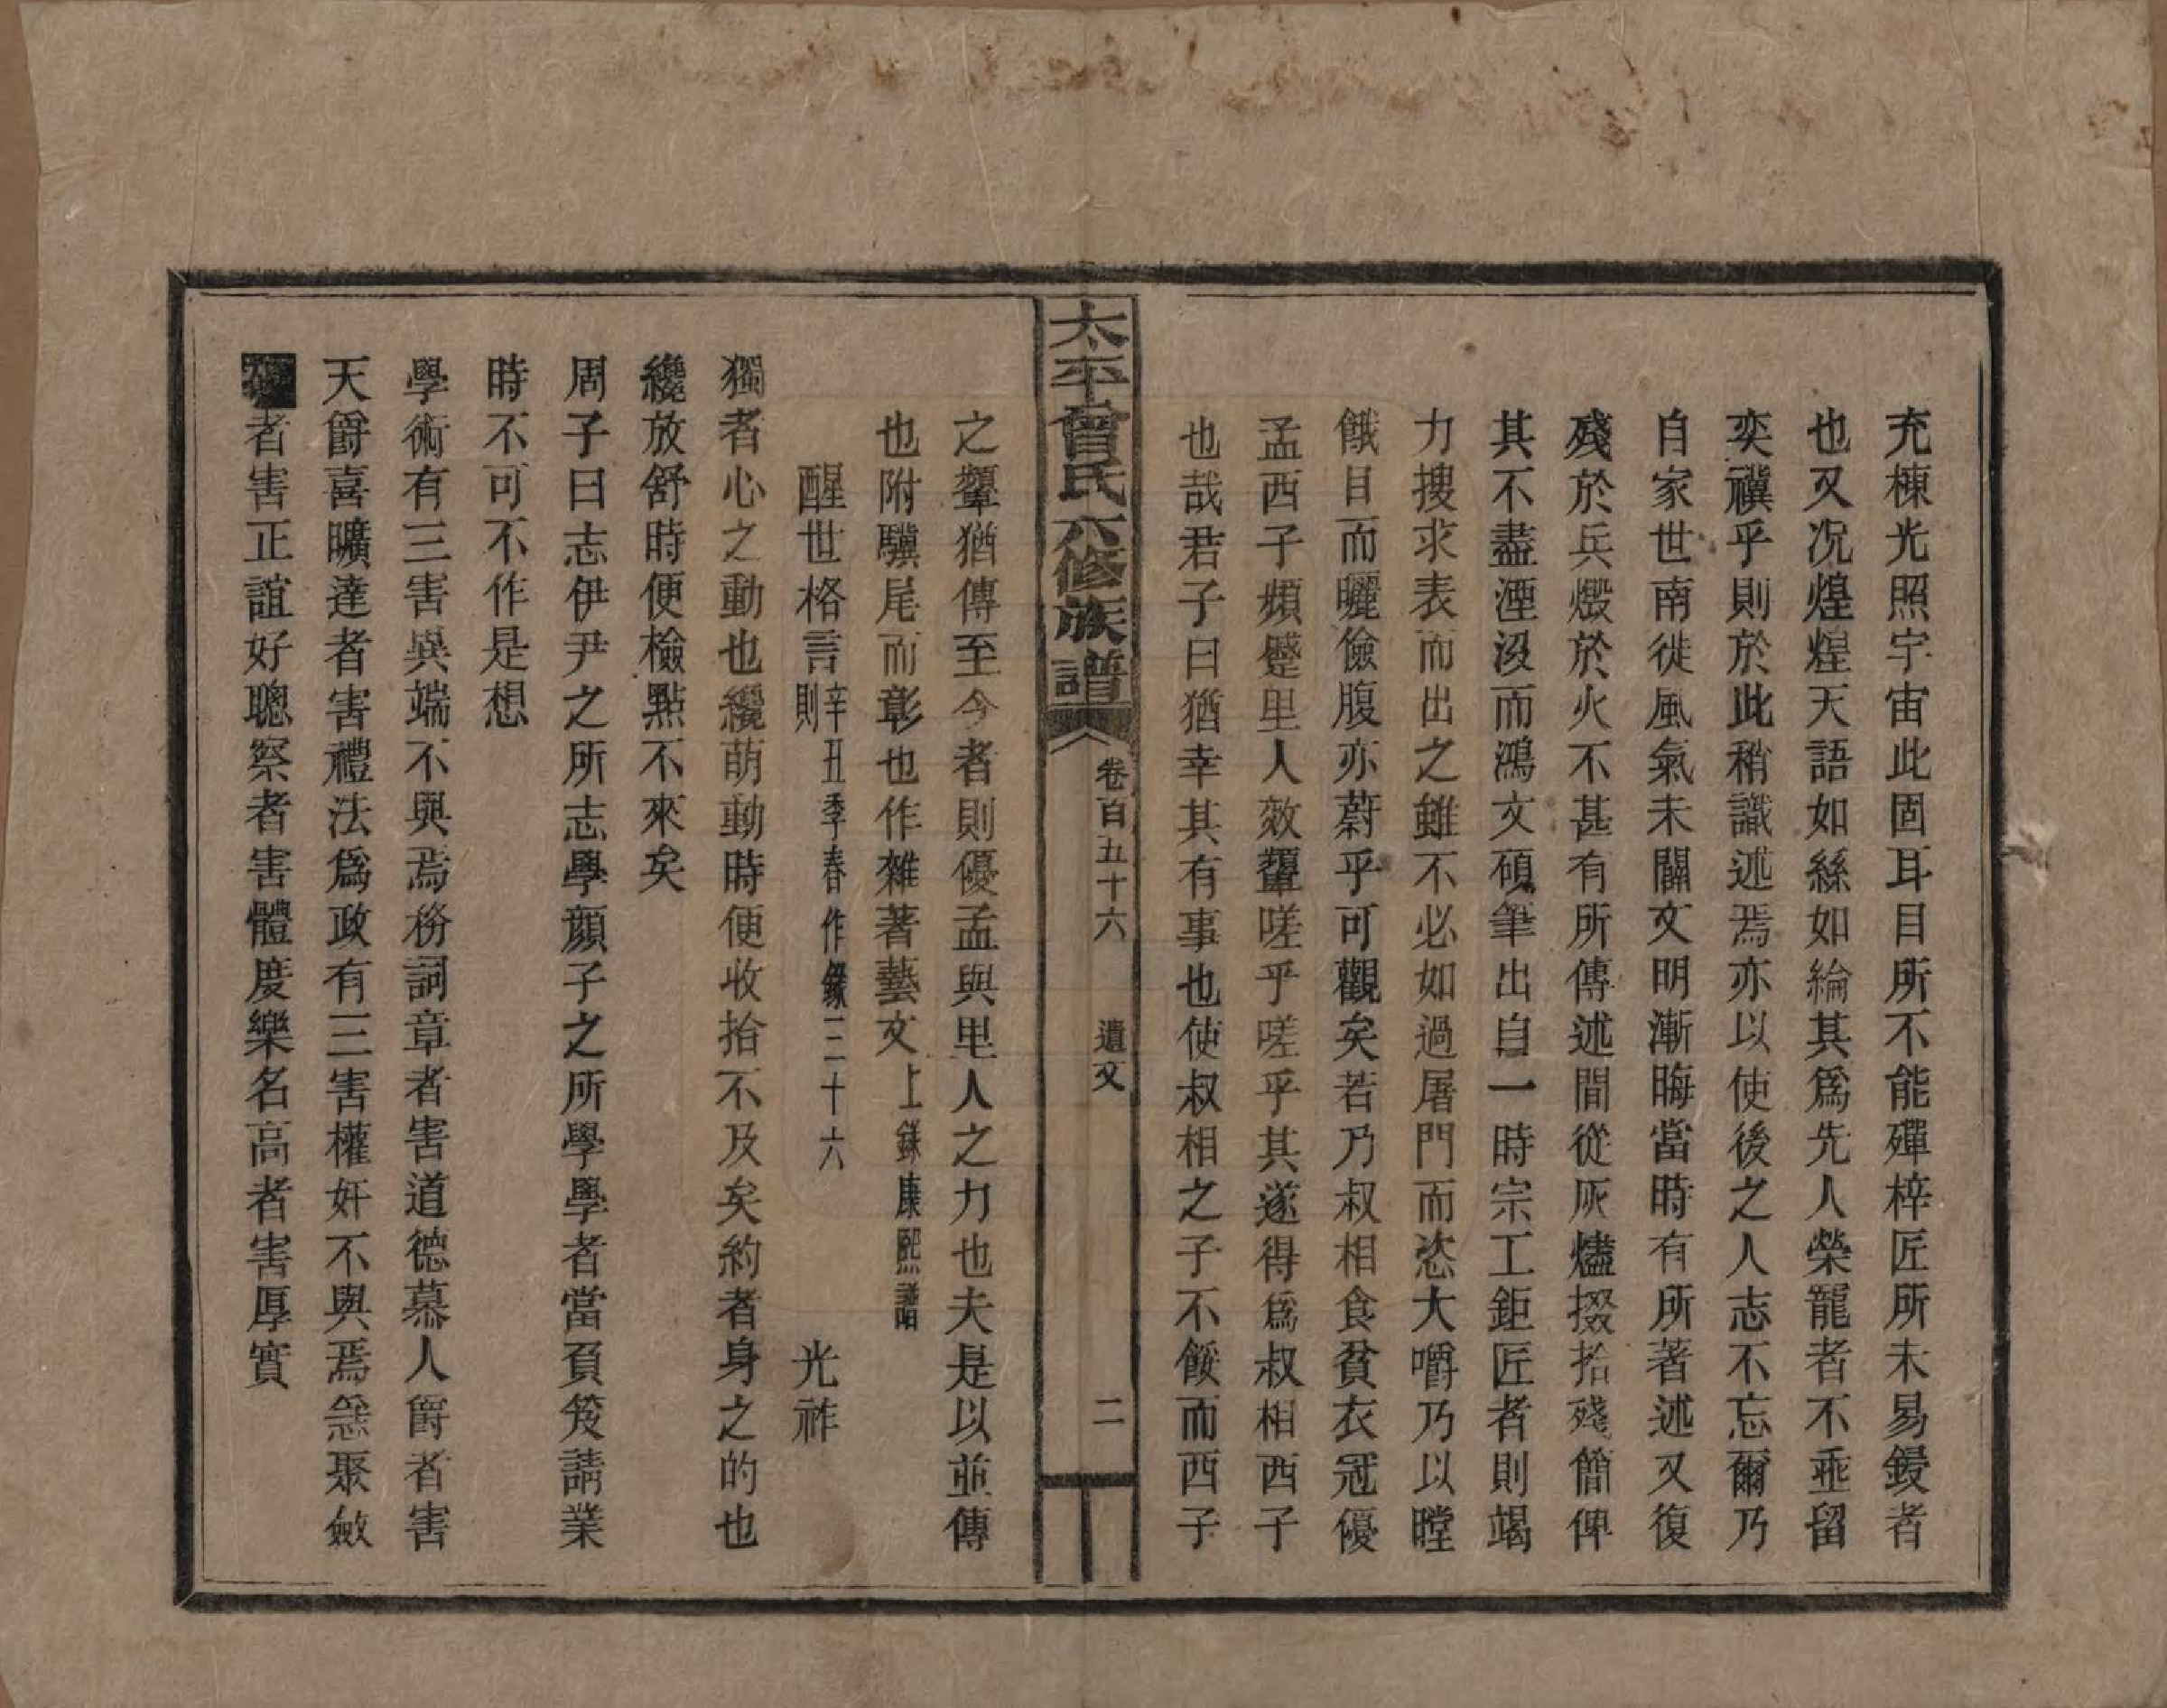 充棟光照宇宙此固耳目所不能殫梓匠所未易鋟者
也又況煌煌天語如絲如綸其為先人榮寵者不垂留
奕禩乎則於此稍識述焉亦以使後之人志不忘爾乃
自家世南徙風氣未闢文明漸晦當時有所著述又復
殘於兵燬於火不甚有所傳述間從灰燼掇拾殘簡俾
其不盡湮沒而鴻文碩筆出自一時宗工鉅匠者則竭
力搜求表而出之雖不必如過屠門而恣大嚼乃以瞠
餓目而曬儉腹亦蔚乎可觀矣若乃叔相食貧衣冠優
孟西子頻蹙里人效顰嗟乎嗟乎其遂得為叔相西子
也哉君子曰猶幸其有事也使叔相之子不餒而西子
太平曾氏六修族譜 卷百五十六 遺文 二
之顰猶傳至今者則優孟與里人之力也夫是以並傳
也附驥尾而彰也作雜著藝文上錄康熙譜
醒世格言辛丑季春作錄三十六則 光祚
獨者心之動也纔萌動時便收拾不及矣約者身之的也
纔放舒時便檢點不來矣
周子曰志伊尹之所志學顏子之所學學者當負笈請業
時不可不作是想
學術有三害異端不與焉務詞章者害道德慕人爵者害
天爵喜曠達者害禮法為政有三害權奸不與焉急聚斂
者害正誼好聰察者害體度樂名高者害厚實